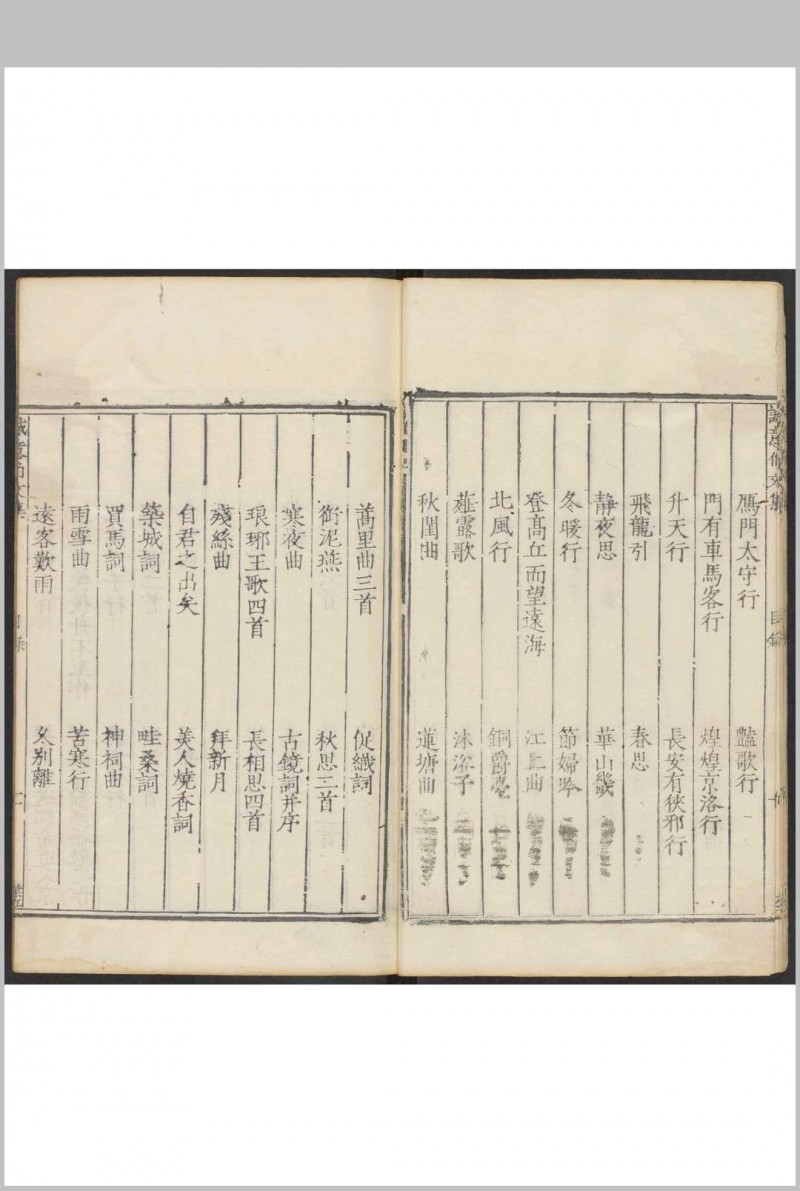 誠意伯文集 目錄
鴈門太守行 豔歌行
門有車馬客行 煌煌京洛行
升天行 長安有狹邪行
飛龍引 春思
靜夜思 華山畿
冬暖行 節婦吟
登高丘而望遠海 江上曲
北風行 銅爵臺
薤露歌 沐浴子
秋閨曲 蓮塘曲
萬里曲三首 促織詞
銜泥燕 秋思二首
寒夜曲 古鏡詞并序
琅琊王歌四首 長相思四首
殘絲曲 拜新月
自君之出矣 美人燒香詞
築城詞 畦桑詞
買馬詞 神祠曲
雨雪曲 苦寒行
遠客歎雨 久別離
誠意伯文集 目錄